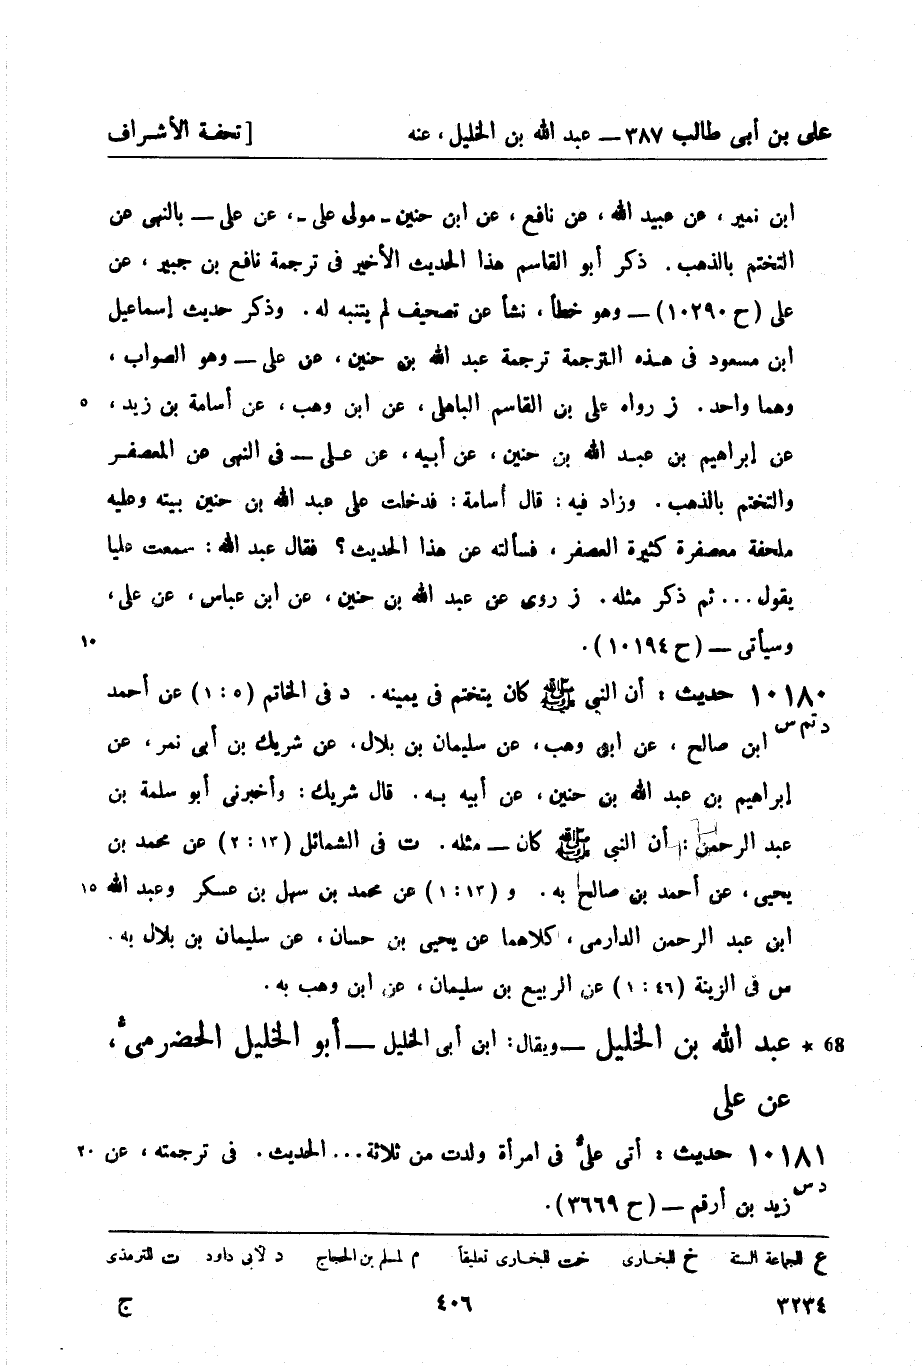 علی بن أبی طالب ٣٨٧ — عبد الله بن الخليل، عنه [ تحفة الأشراف
ابن نمير، عن عبيد الله، عن نافع، عن ابن حنين ـ مولى على ـ، عن على — بالنهى عن
التختم بالذهب. ذكر أبو القاسم هذا الحديث الأخير فى ترجمة نافع بن جبير، عن
على (ح ١٠٢٩٠) — وهو خطأ، نشأ عن تصحيف لم يتنبه له. وذكر حديث إسماعيل
ابن مسعود فى هذه الترجمة ترجمة عبد الله بن حنين، عن على — وهو الصواب،
وهما واحد. ز رواه على بن القاسم الباهلى، عن ابن وهب، عن أسامة بن زيد، ٥
عن إبراهيم بن عبد الله بن حنين، عن أبيه، عن على — فى النهى عن المعصفر
والتختم بالذهب. وزاد فيه: قال أسامة: فدخلت على عبد الله بن حنين بيته وعليه
ملحفة معصفرة كثيرة العصفر، فسألته عن هذا الحديث؟ فقال عبد الله: سمعت عليا
يقول... ثم ذكر مثله. ز روى عن عبد الله بن حنين، عن ابن عباس، عن على،
وسيأتى — (ح ١٠١٩٤). ١٠
١٠١٨٠ حديث: أن النبي ﷺ كان يتختم فى يمينه. د فى الخاتم (٥ : ١) عن أحمد
د تم س ابن صالح، عن ابن وهب، عن سليمان بن بلال، عن شريك بن أبى نمر، عن
إبراهيم بن عبد الله بن حنين، عن أبيه به. قال شريك: وأخبرنى أبو سلمة بن
عبد الرحمن: أن النبي ﷺ كان — مثله. ت فى الشمائل (١٣ : ٢) عن محمد بن
يحيى، عن أحمد بن صالح به. و (١٣ : ١) عن محمد بن سهل بن عسكر وعبد الله ١٥
ابن عبد الرحمن الدارمى، كلاهما عن يحيى بن حسان، عن سليمان بن بلال به.
س فى الزينة (٤٦ : ١) عن الربيع بن سليمان، عن ابن وهب به.
68 * عبد الله بن الخليل — ويقال: ابن أبى الخليل — أبو الخليل الحضرمىُّ،
عن على
١٠١٨١ حديث: أتى علىٌّ فى امرأة ولدت من ثلاثة... الحديث. فى ترجمته، عن ٢٠
د س زيد بن أرقم — (ح ٣٦٦٩).
ع للجماعة الستة خ للبخارى خت للبخارى تعليقاً م لمسلم بن الحجاج د لأبى داود ت للترمذى
٣٢٣٤ ٤٠٦ ج